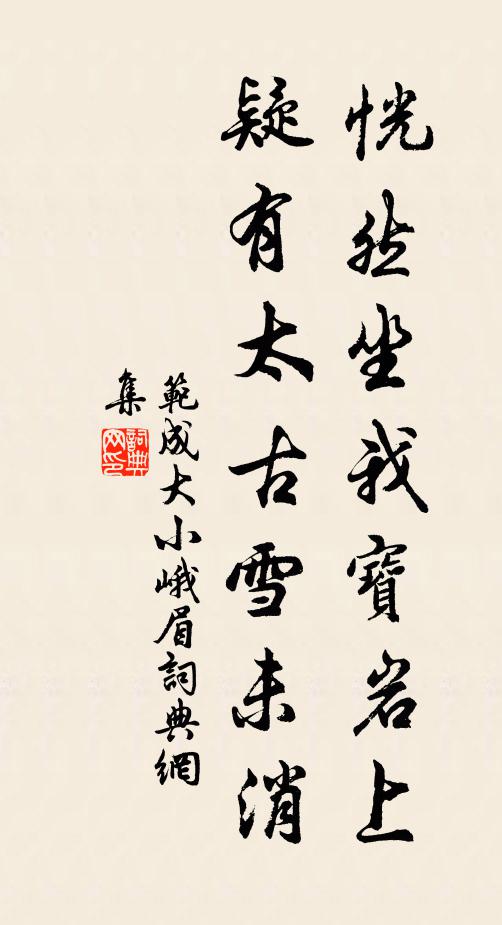 恍然坐我寶岩上
疑有太古雪未消
範成大小峨眉詞典網
集
詞典网印